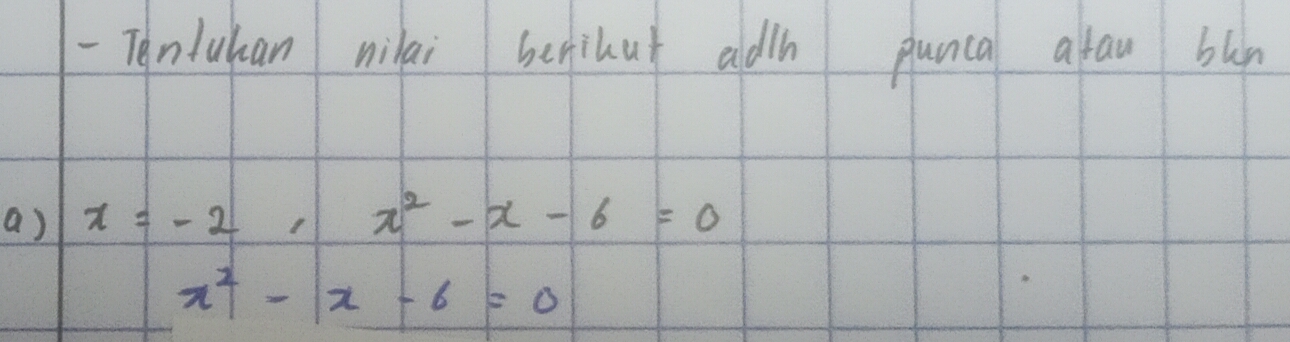 - Tentukan nilai berikut adlh punca atau bkn
a) x = -2 , x² - x - 6 = 0
x² - x - 6 = 0